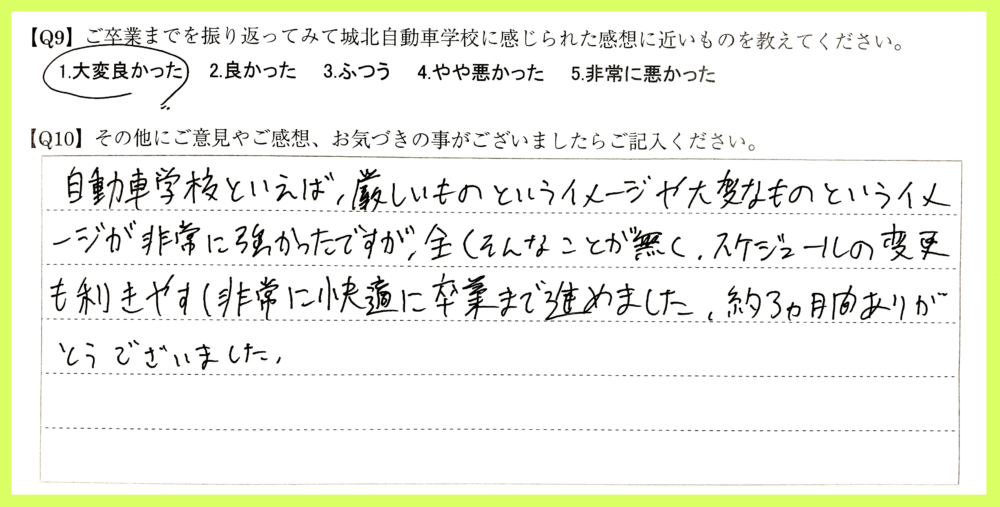 【Q9】ご卒業までを振り返ってみて城北自動車学校に感じられた感想に近いものを教えてください。
1.大変良かった 2.良かった 3.ふつう 4.やや悪かった 5.非常に悪かった
【Q10】その他にご意見やご感想、お気づきの事がございましたらご記入ください。
自動車学校といえば、厳しいものというイメージや大変なものというイメ
ージが非常に強かったですが、全くそんなことが無く、スケジュールの変更
も利きやすく非常に快適に卒業まで進めました。約3ヵ月間ありが
とうございました。